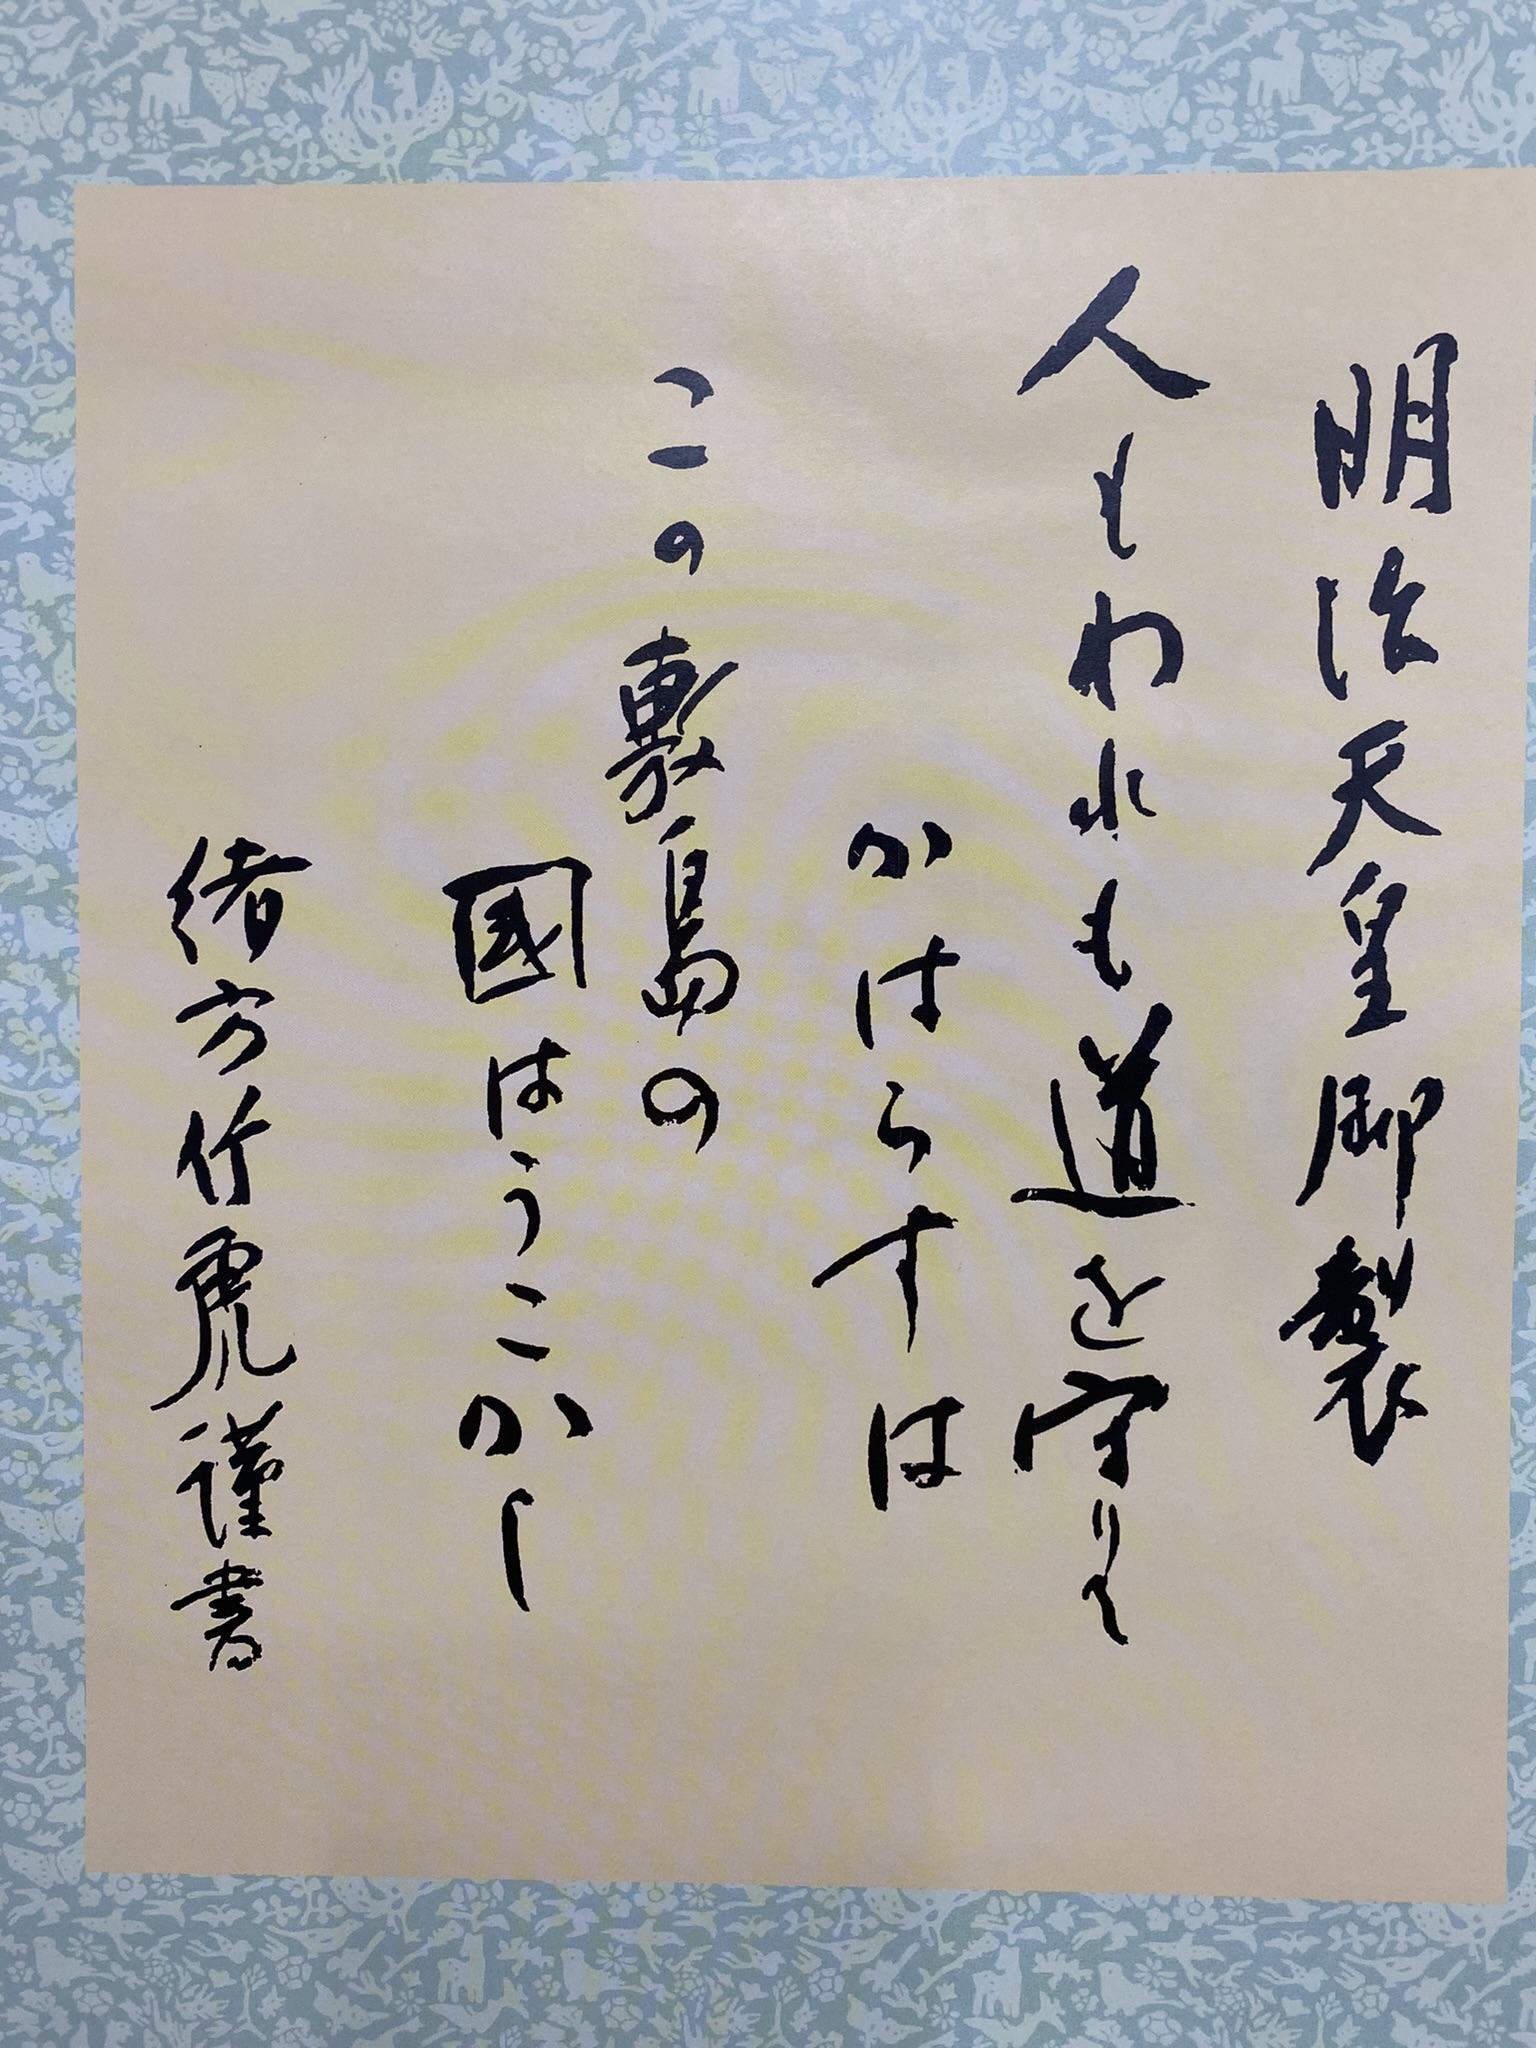 明治天皇御製
人もわれも道を守りて
かはらすは
この敷島の
國はうこかし
緒方竹虎謹書